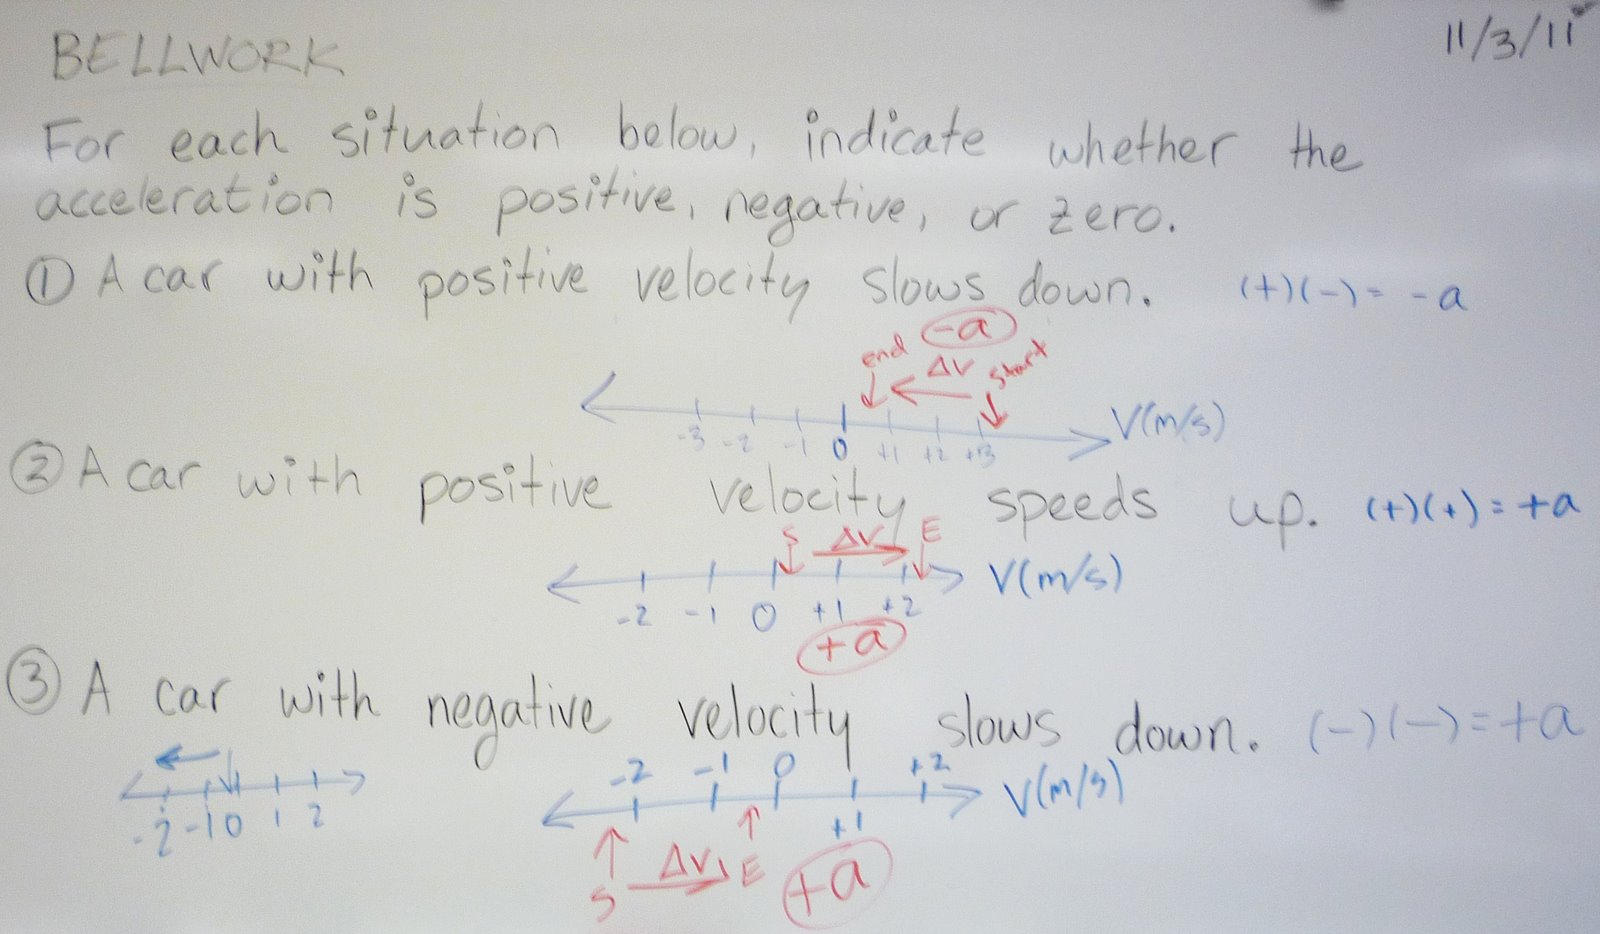 BELLWORK
11/3/11
For each situation below, indicate whether the
acceleration is positive, negative, or zero.
① A car with positive velocity slows down. (+)(-) = -a
-a
end ΔV start
V(m/s)
-3 -2 -1 0 +1 +2 +3
② A car with positive velocity speeds up. (+)(+) = +a
S ΔV E
V(m/s)
-2 -1 0 +1 +2
+a
③ A car with negative velocity slows down. (-)(-) = +a
-2 -1 0 1 2
-2 -1 0 +1 +2
V(m/s)
S ΔV E
+a